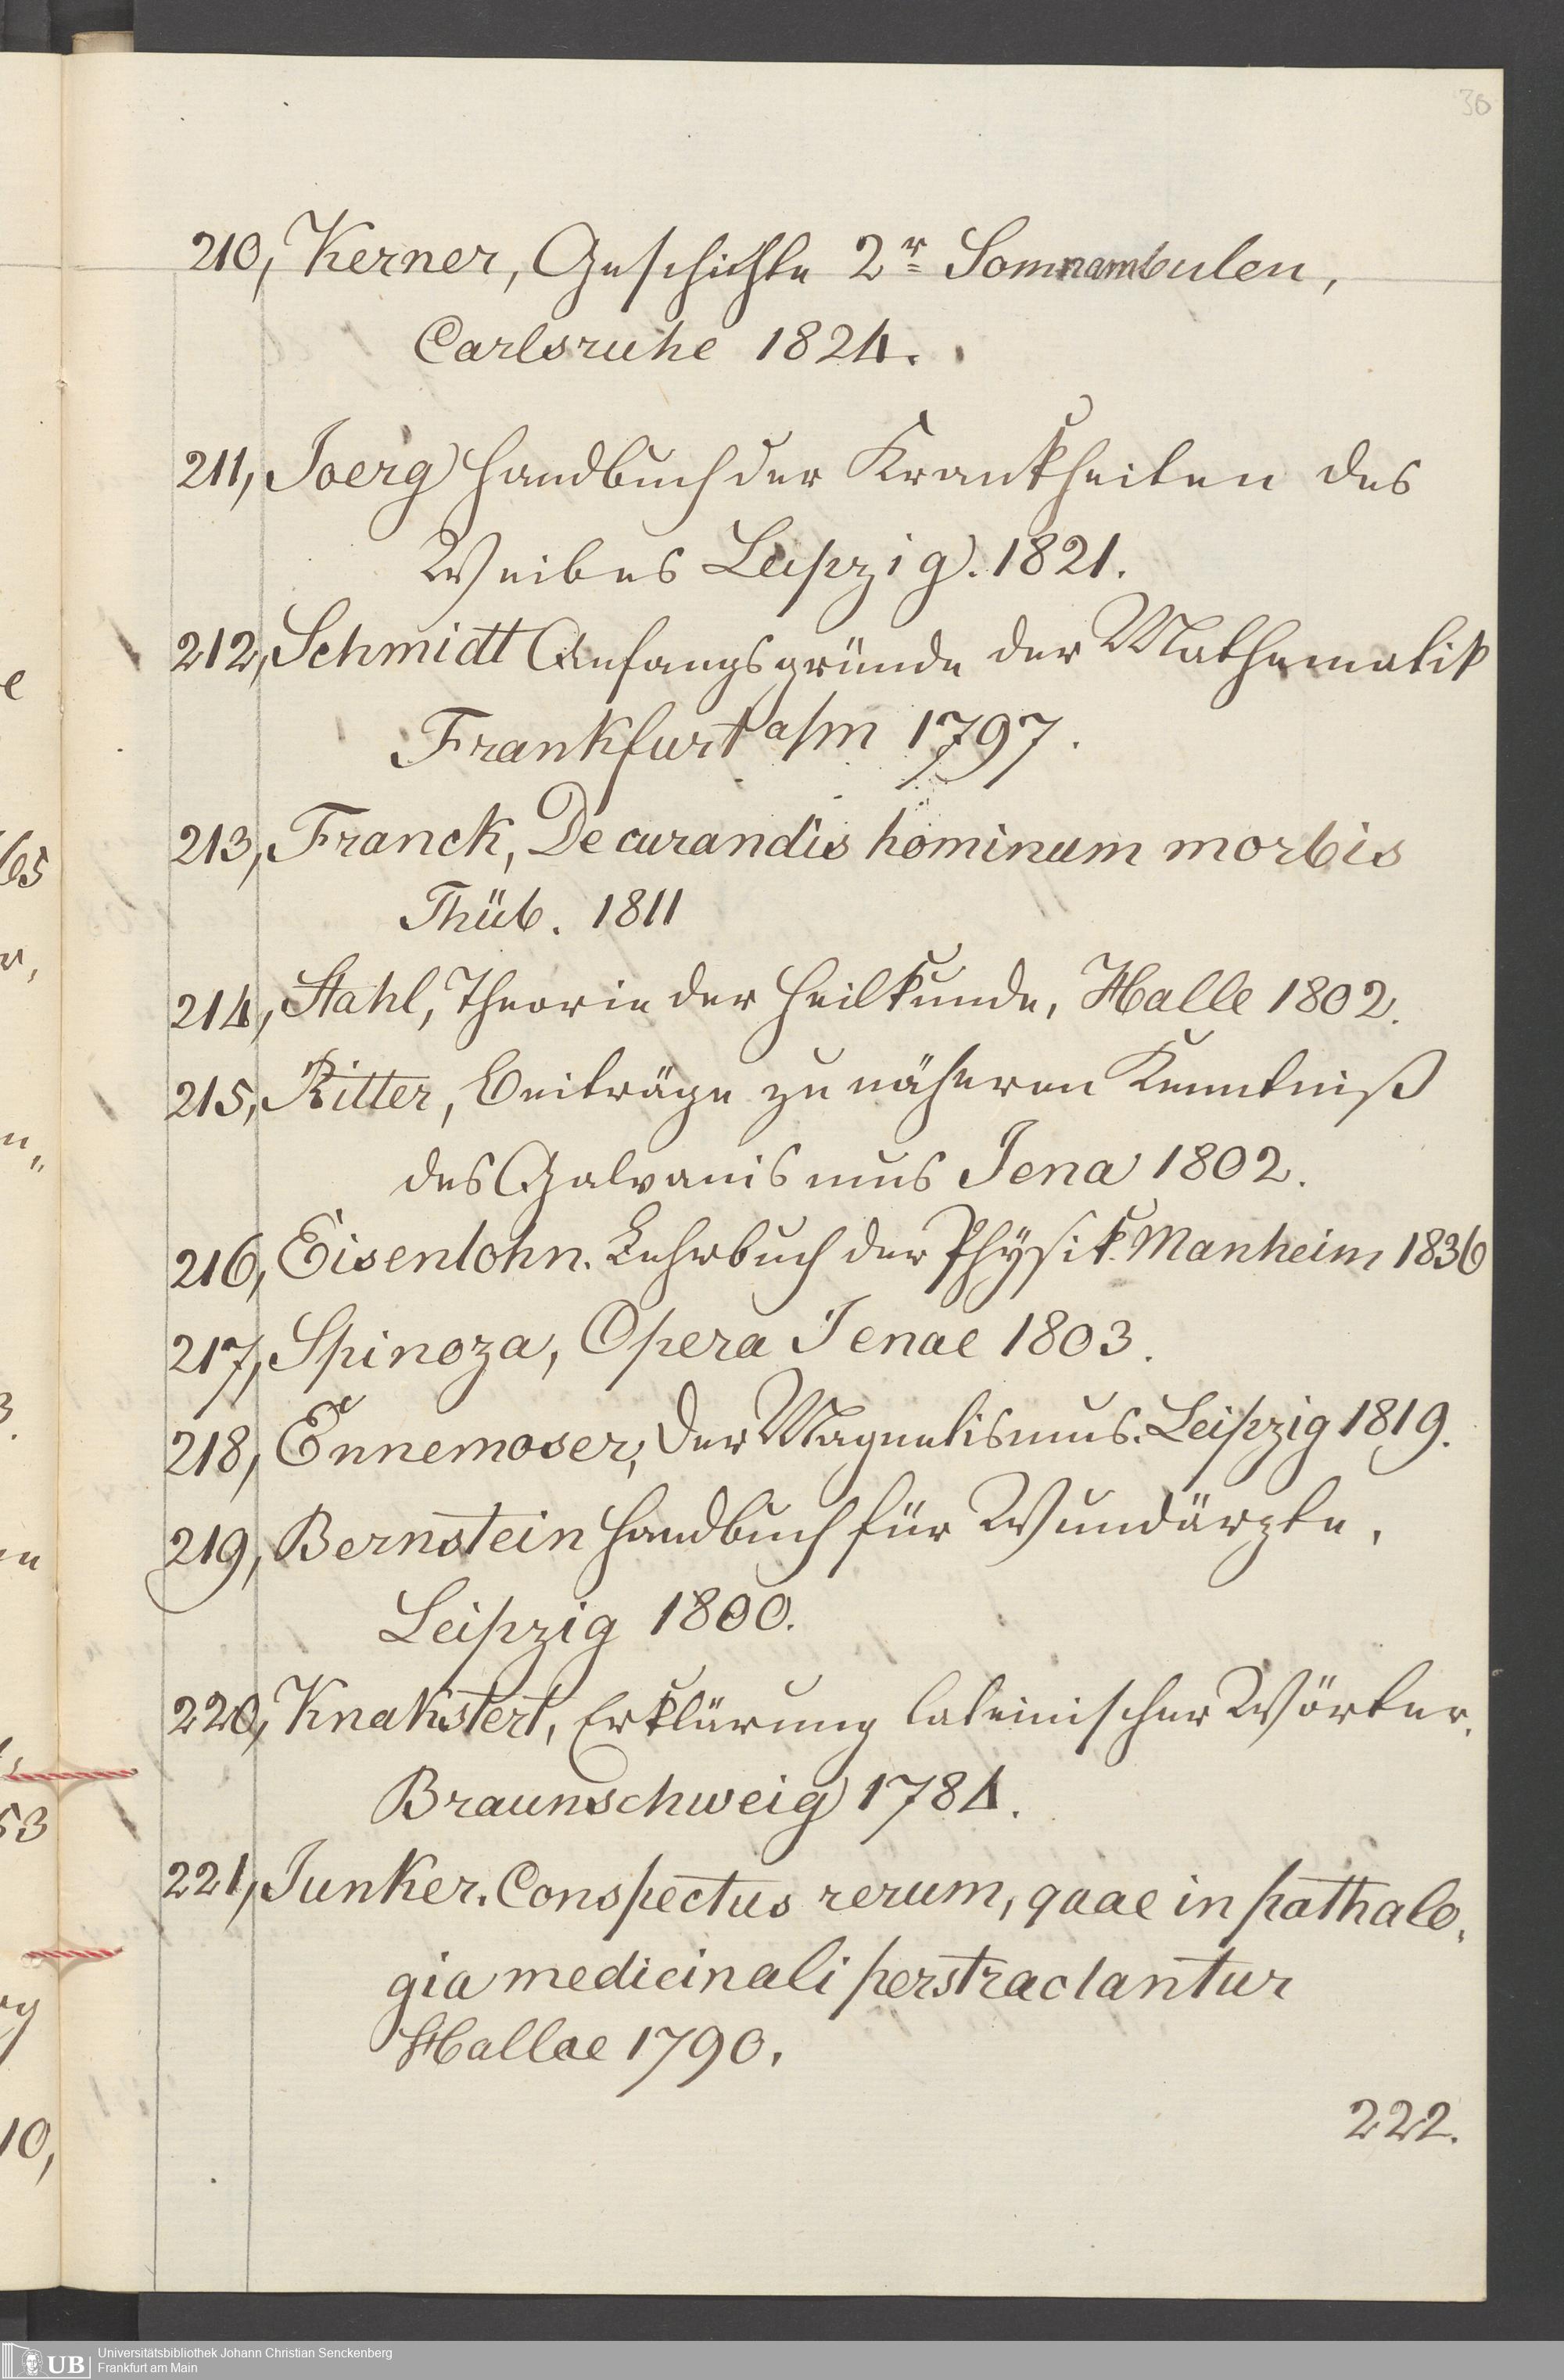 30
210, Kerner, Geschichte 2r Somnambulen,
Carlsruhe 1824.
211, Joerg Handbuch der Krankheiten des
Weibes Leipzig. 1821.
212, Schmidt Anfangsgründe der Mathematik
Frankfurt a/m 1797.
213, Franck, De curandis hominum morbis
Thüb. 1811
214, Stahl, Theorie der Heilkunde, Halle 1802.
215, Ritter, Beiträge zu näheren Kenntniß
des Galvanismus Jena 1802.
216, Eisenlohn. Lehrbuch der Physik. Manheim 1836
217, Spinoza, Opera Jenae 1803.
218, Ennemoser, der Magnetismus. Leipzig 1819.
219, Bernstein Handbuch für Wundärzte,
Leipzig 1800.
220, Knakstert, Erklärung lateinischer Wörter.
Braunschweig 1784.
221, Junker. Conspectus rerum, quae in pathalo,
gia medicinali perstractantur
Hallae 1790.
222.
e
65
r,
n,,
3.
en
53
rg
10,
UB
Universitätsbibliothek Johann Christian Senckenberg
Frankfurt am Main